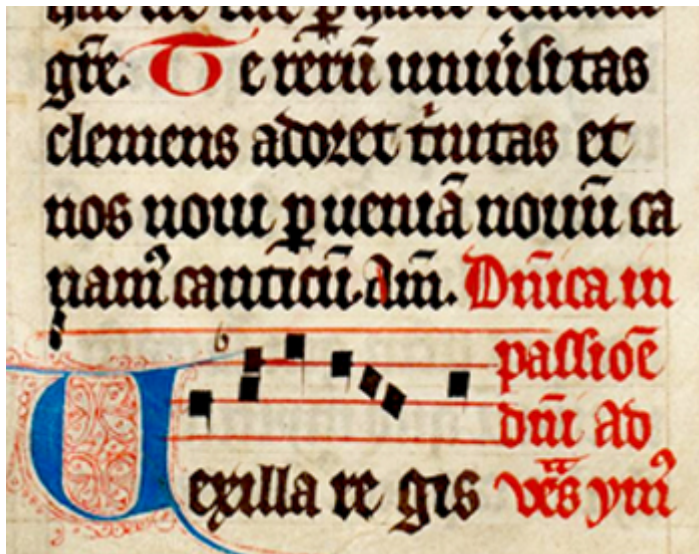 gr̄e. Te rerū uniu̇sitas
clemens adoret tͥnitas et
nos noui ꝑ ueniā nouū ca
namꝰ canticū. Am̄. Dn̄ica in
passioē
dn̄i ad
Uexilla re gis ves̄ ymꝰ